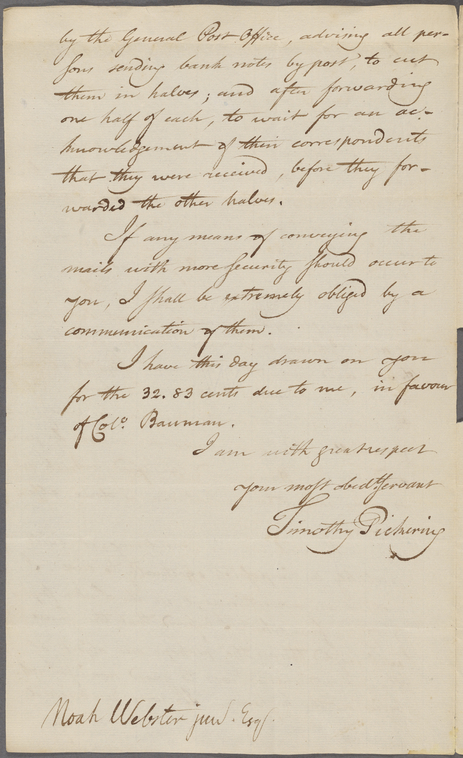 by the General Post Office, advising all per-
sons sending bank notes by post, to cut
them in halves; and after forwarding
one half of each, to wait for an ac-
knowledgement of their correspondents
that they were received, before they for-
warded the other halves.
If any means of conveying the
mails with more security should occur to
you, I shall be extremely obliged by a
communication of them.
I have this day drawn on you
for the 32.83 cents due to me, in favour
of Colo. Bauman.
I am with great respect
your most obedt. servant
Timothy Pickering
Noah Webster junr. Esqr.